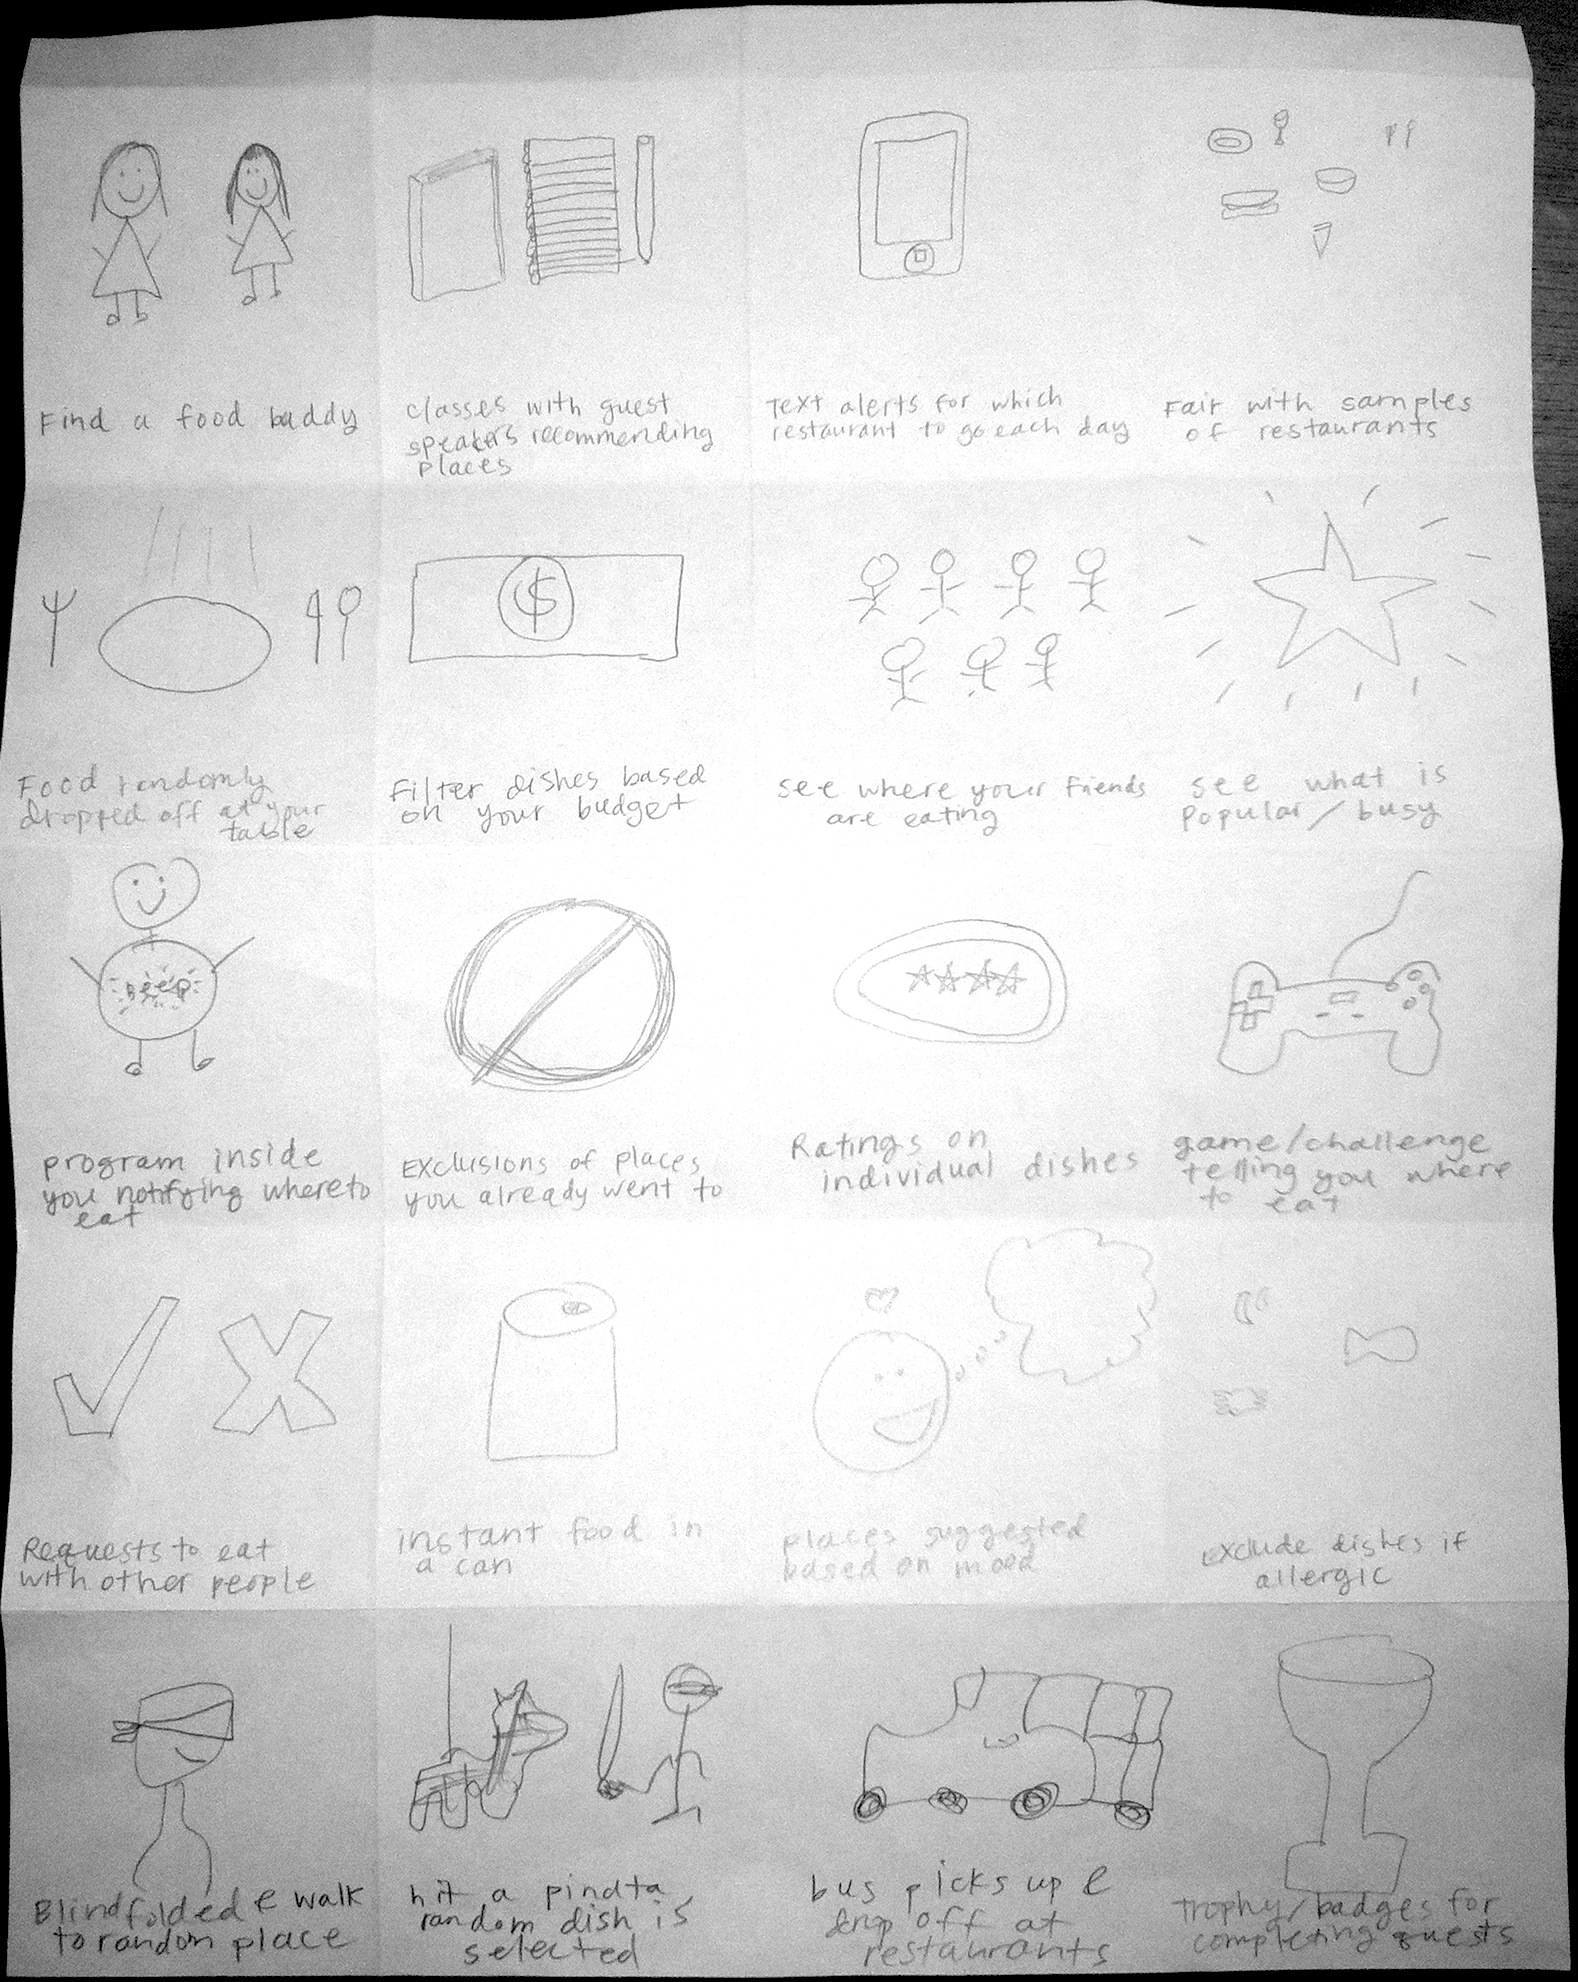 Find a food buddy
classes with guest
speakers recommending
places
Text alerts for which
restaurant to go each day
Fair with samples
of restaurants
$
Food randomly
dropped off at your
table
Filter dishes based
on your budget
see where your friends
are eating
see what is
popular/busy
beep
program inside
you notifying where to
eat
Exclusions of places
you already went to
Ratings on
individual dishes
game/challenge
telling you where
to eat
Requests to eat
with other people
instant food in
a can
places suggested
based on mood
Exclude dishes if
allergic
Blindfolded & walk
to random place
hit a pinata
random dish is
selected
bus picks up &
drop off at
restaurants
trophy/badges for
completing quests